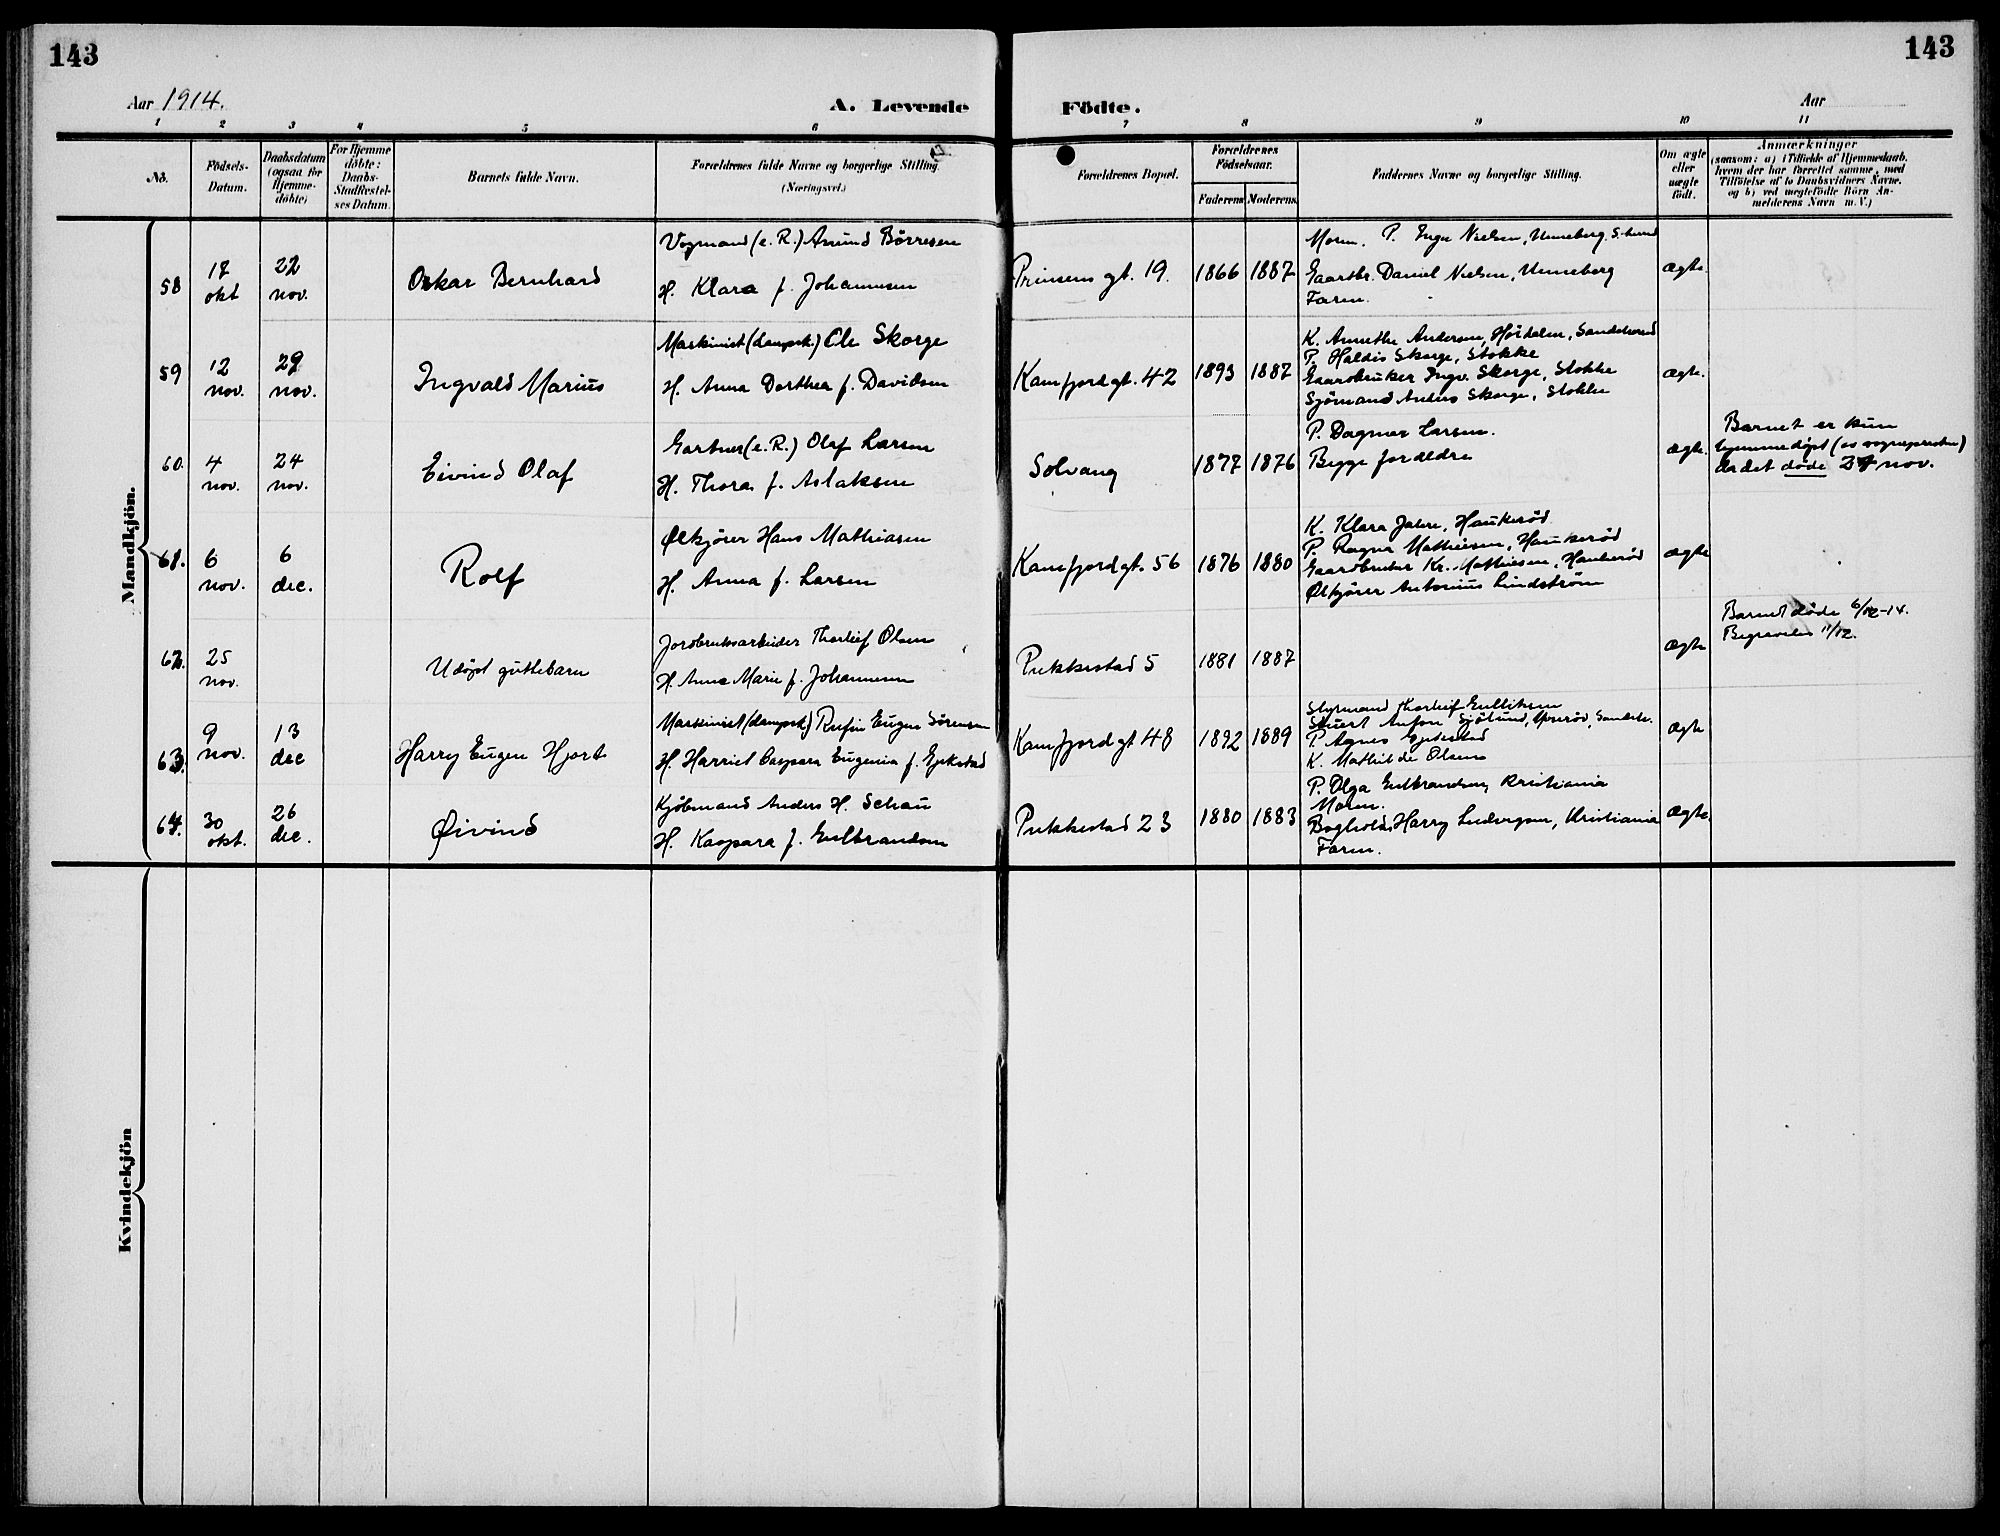 143
143
Aar 1914.
A. Levende
Födte.
Aar
1 2 3 4 5 6 7 8 9 10 11
No.
Födsels-
Datum.
Daabsdatum
(ogsaa for
Hjemme-
döbte)
For Hjemme
döbte:
Daabs-
Stadfestel-
ses Datum.
Barnets fulde Navn.
Forældrenes fulde Navne og borgerlige Stilling.
(Næringsvei.)
Forældrenes Bopæl.
Forældrenes
Födselsaar.
Faderens
Moderens
Faddernes Navne og borgerlige Stilling.
Om ægte
eller
uægte
födt.
Anmærkninger
(saasom: a) i Tilfælde af Hjemmedaab,
hvem der har forrettet samme, med
Tilföielse af to Daabsvidners Navne.
og b) ved uegtefödte Börn An-
melderens Navn m. V.)
Mandkjön.
58
18
okt
22
nov.
Oskar Bernhard
Vognmand (e. R.) Anund Börresen
H. Klara f. Johannesen
Prinsens gt. 19.
1866
1887
Morm. P. Inga Nielsen, Unneberg, S.herred
Gaardbr. Daniel Nielsen, Unneberg
Farm.
ægte.
59
12
nov.
29
nov.
Ingvald Marius
Maskinist (dampsk.) Ole Skorge
H. Anna Dorthea f. Davidsen
Kamfjordgt. 42
1893
1887
K. Annethe Andersen, Sandeherred
P. Haldis Skorge, Stokke
Gaardbruker Ingv. Skorge, Stokke
Sjömand Anders Skorge, Stokke
ægte.
60.
4
nov.
24
nov.
Eivind Olaf
Gartner (e. R.) Olaf Larsen
H. Thora f. Aslaksen
Solvang
1877
1876
P. Dagmar Larsen.
Begge forældre
ægte.
Barnet er kun
hjemmedøpt (av sognepresten)
da det døde 24 nov.
61.
6
nov.
6
dec.
Rolf
Ølkjører Hans Mathiasen
H. Anna f. Larsen
Kamfjordgt. 56
1876
1880
K. Klara Jahre, Haukerød
P. Ragna Mathiesen, Haukerød
Gaardbruker Kr. Mathiesen, Haukerød
Ølkjører Antonius Lindstrøm
ægte
62.
25
nov.
Udøpt guttebarn
Jordbruksarbeider Thorleif Olsen
H. Anna Marie f. Johannesen
Pukkestad 5
1881
1887
ægte
Barnet døde 6/12-14.
Begravelse 11/12.
63.
9
nov.
13
dec
Harry Eugen Hjort
Maskinist (dampsk.) Rufin Eugen Sørensen
H. Harriet Caspara Eugenia f. Gjekstad
Kamfjordgt 48
1892
1889
Styrmand Thorleif Gulliksen
Anton Sjölund, Sandeh.
P. Agnes Gjekstad
K. Mathilde Olsen
ægte
64.
30
okt.
26
dec.
Øivind
Kjöbmand Anders H. Schau
H. Kaspara f. Gulbrandsen
Pukkestad 23
1880
1883
P. Olga Gulbrandsen, Kristiania
Morm.
Bogholder Harry Ludvigsen, Kristiania
Farm.
ægte.
Kvindekjön